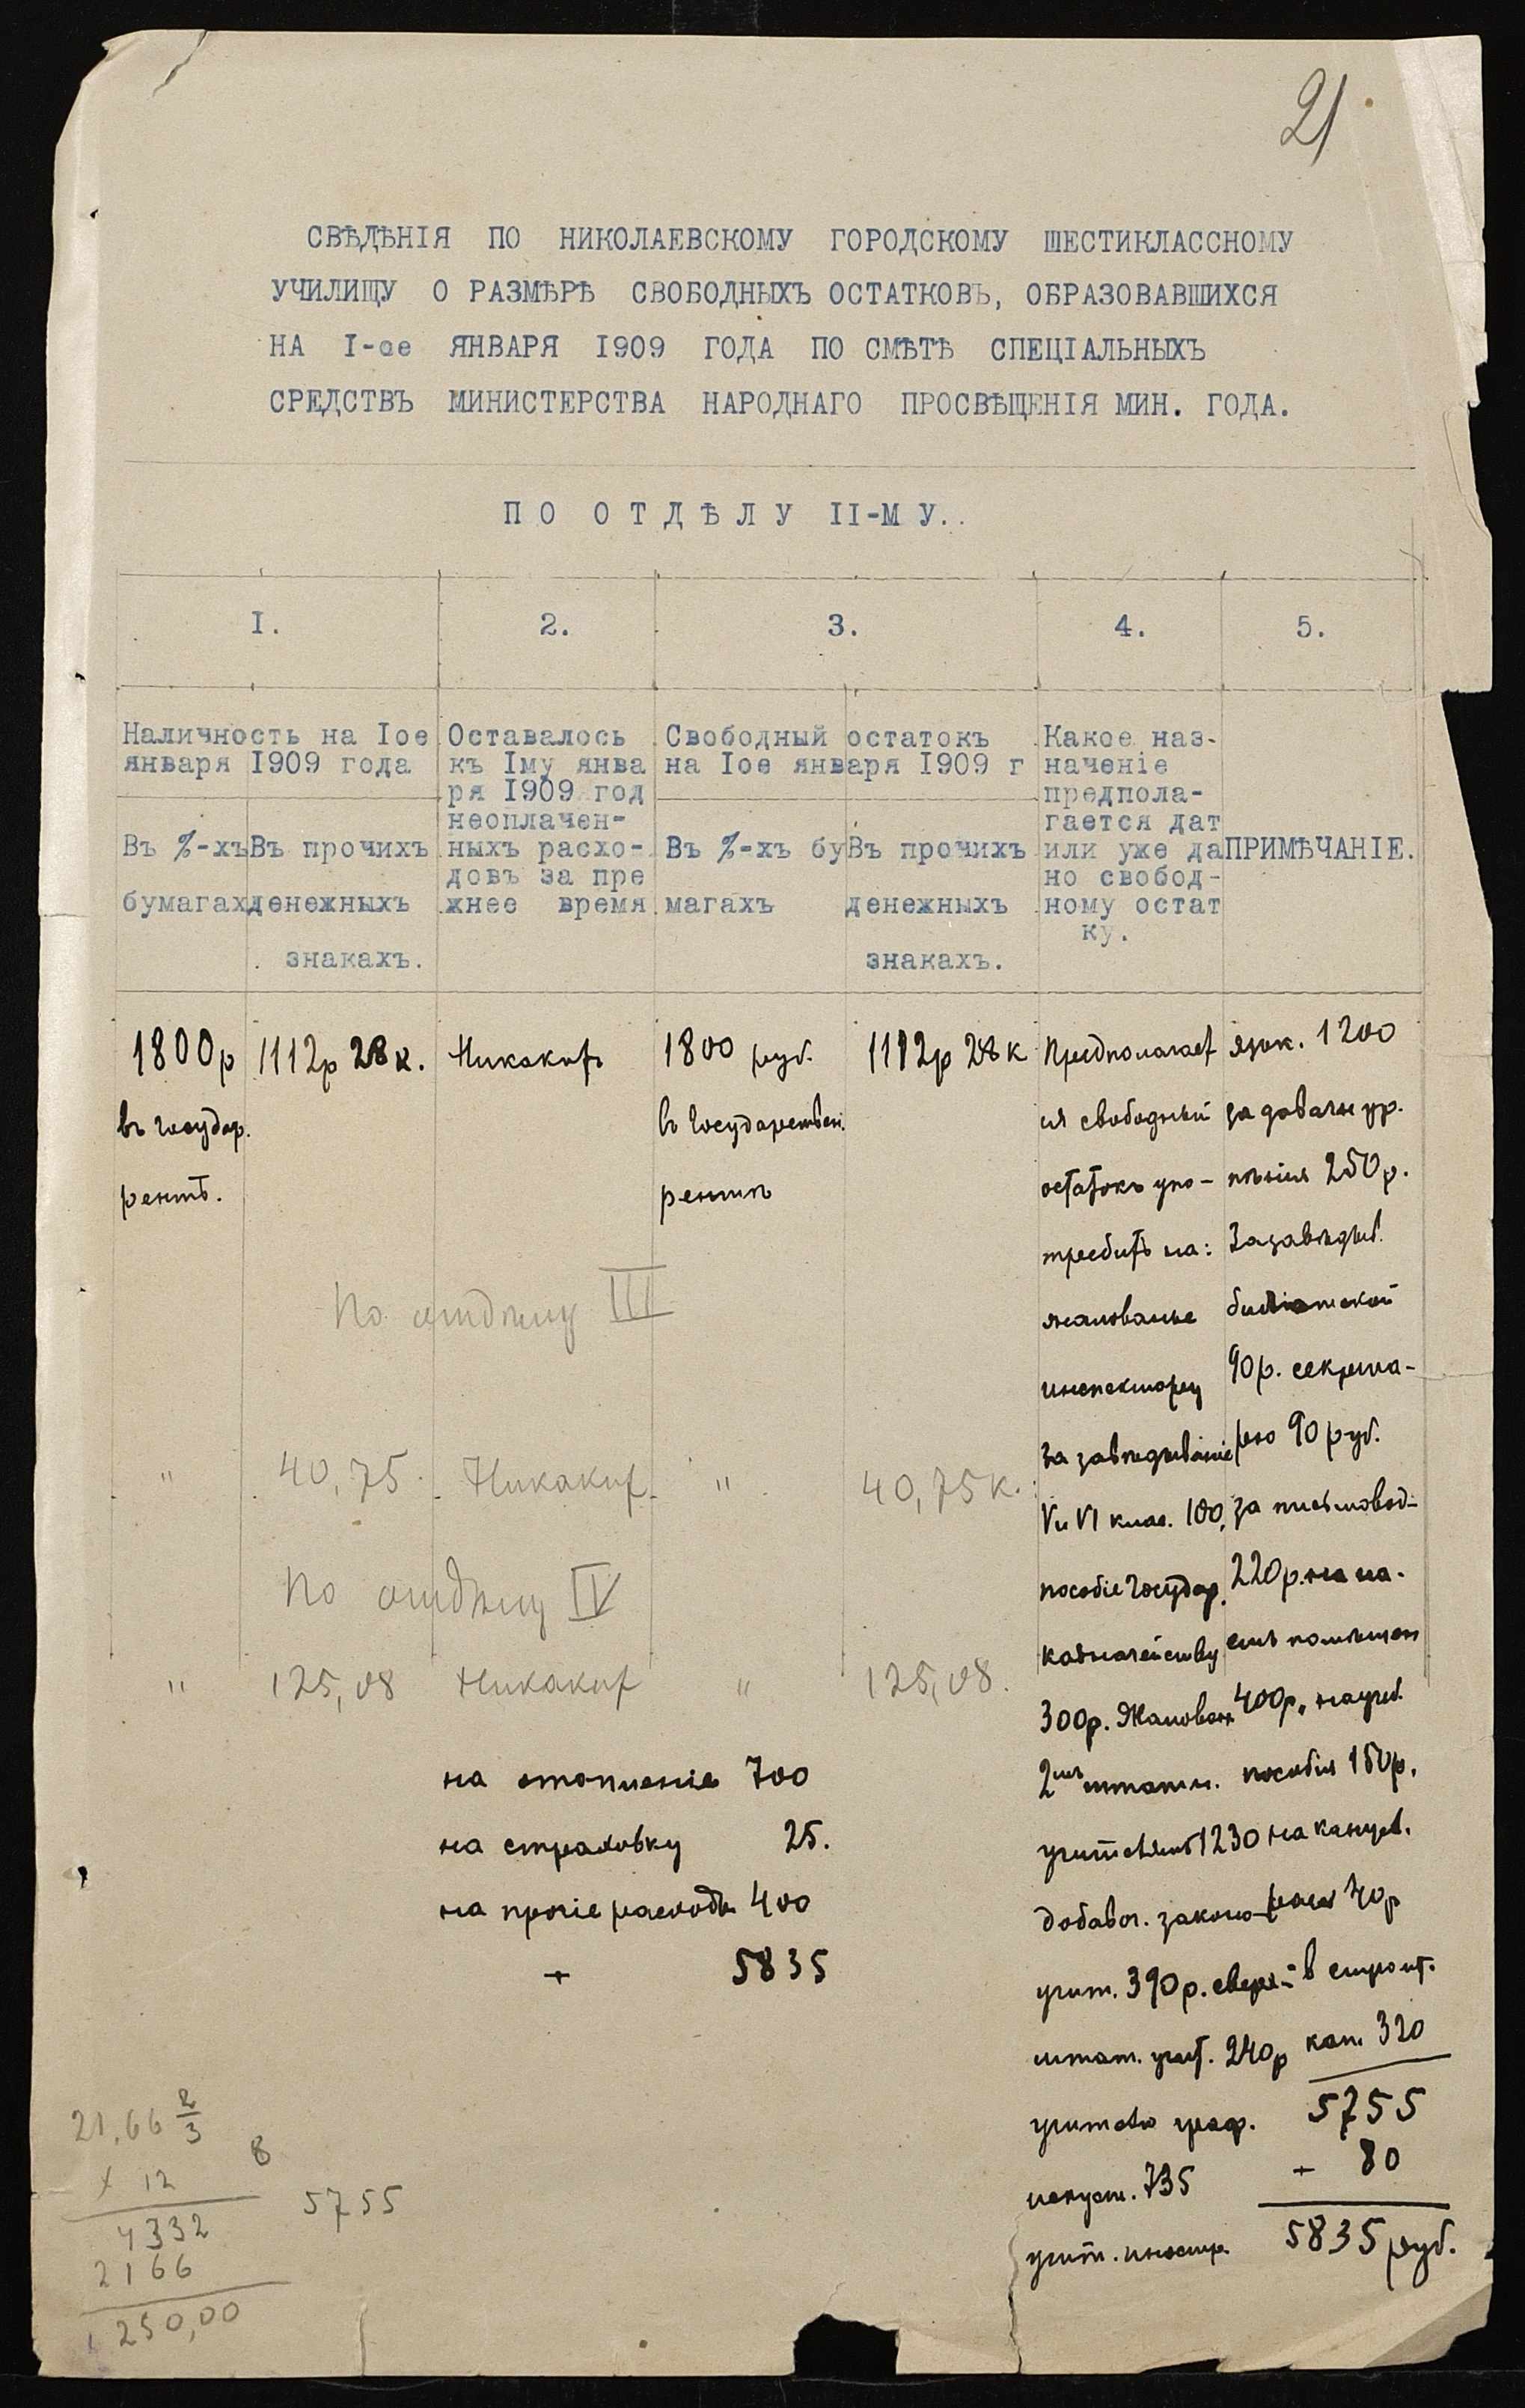 21
СВѢДѢНІЯ ПО НИКОЛАЕВСКОМУ ГОРОДСКОМУ ШЕСТИКЛАССНОМУ
УЧИЛИЩУ О РАЗМѢРѢ СВОБОДНЫХЪ ОСТАТКОВЪ, ОБРАЗОВАВШИХСЯ
НА I-ое ЯНВАРЯ I909 ГОДА ПО СМѢТѢ СПЕЦІАЛЬНЫХЪ
СРЕДСТВЪ МИНИСТЕРСТВА НАРОДНАГО ПРОСВѢЩЕНІЯ МИН. ГОДА.
ПО ОТДѢЛУ II-МУ..
I. 2. 3. 4. 5.
Наличность на Iое
января I909 года
Въ %-хъ
бумагахъ
Въ прочихъ
денежныхъ
знакахъ.
Оставалось
къ Iму янва
ря I909 год
неоплачен-
ныхъ расхо-
довъ за пре
жнее время
Свободный остатокъ
на Iое января I909 г
Въ %-хъ бу
магахъ
Въ прочихъ
денежныхъ
знакахъ.
Какое наз-
наченіе
предпола-
гается дат
или уже да
но свобод-
ному остат
ку.
ПРИМѢЧАНІЕ.
1800р
въ государ.
рентѣ.
1112р 28к.
Никакихъ
1800 руб.
въ Государствен.
рентѣ
1112р 28к
Предполагает
ся свободный
остатокъ упо-
требить на:
жалованье
инспектору
за завѣдываніе
V и VI клас. 100,
пособіе Государ.
казначейству
300р. Жалован
2мъ штатн.
учителямъ 1230
добавоч. законо-
учит. 390р. сверх-
штат. учит. 240р
учителю граф.
искуст. 735
учит. иностр.
язык. 1200
за добавоч ур.
пѣнія 250р.
За завѣдыв.
библіотекой
90р. секрета-
рю 90 руб.
за письмовод-
220р. на на-
емъ помѣщен
400р., на учеб.
пособія 150р.
на канцел.
расх 40р
в строит.
кап. 320
5755
+ 80
5835 руб.
По отдѣлу III
" 40,75. Никаких " 40,75к.
По отдѣлу IV
" 125,08 Никаких " 125,08.
на отопленіе 700
на страховку 25.
на прочіе расходы 400
+ 5835
21,66 2/3
8
x 12
4332
2166
250,00
5755